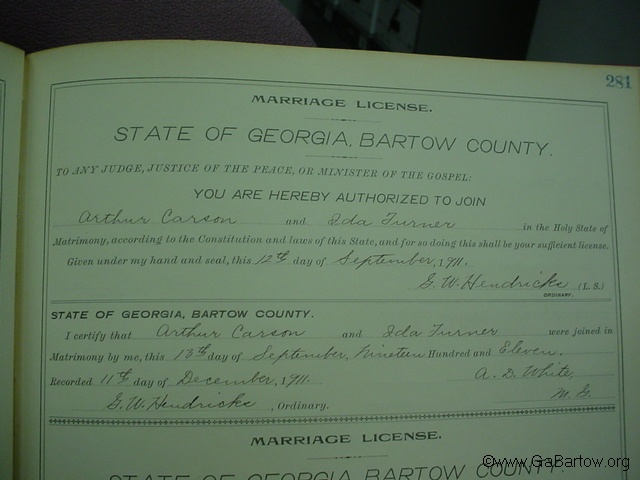 281
MARRIAGE LICENSE.
STATE OF GEORGIA, BARTOW COUNTY.
TO ANY JUDGE, JUSTICE OF THE PEACE, OR MINISTER OF THE GOSPEL:
YOU ARE HEREBY AUTHORIZED TO JOIN
Arthur Carson and Ida Turner in the Holy State of
Matrimony, according to the Constitution and laws of this State, and for so doing this shall be your sufficient license.
Given under my hand and seal, this 12th day of September, 1911.
G. W. Hendricks (L. S.)
ORDINARY.
STATE OF GEORGIA, BARTOW COUNTY.
I certify that Arthur Carson and Ida Turner were joined in
Matrimony by me, this 13th day of September, Nineteen Hundred and Eleven.
Recorded 11th day of December, 1911. A. D. White,
G. W. Hendricks, Ordinary. M. G.
MARRIAGE LICENSE.
STATE OF GEORGIA, BARTOW COUNTY.
©www.GaBartow.org